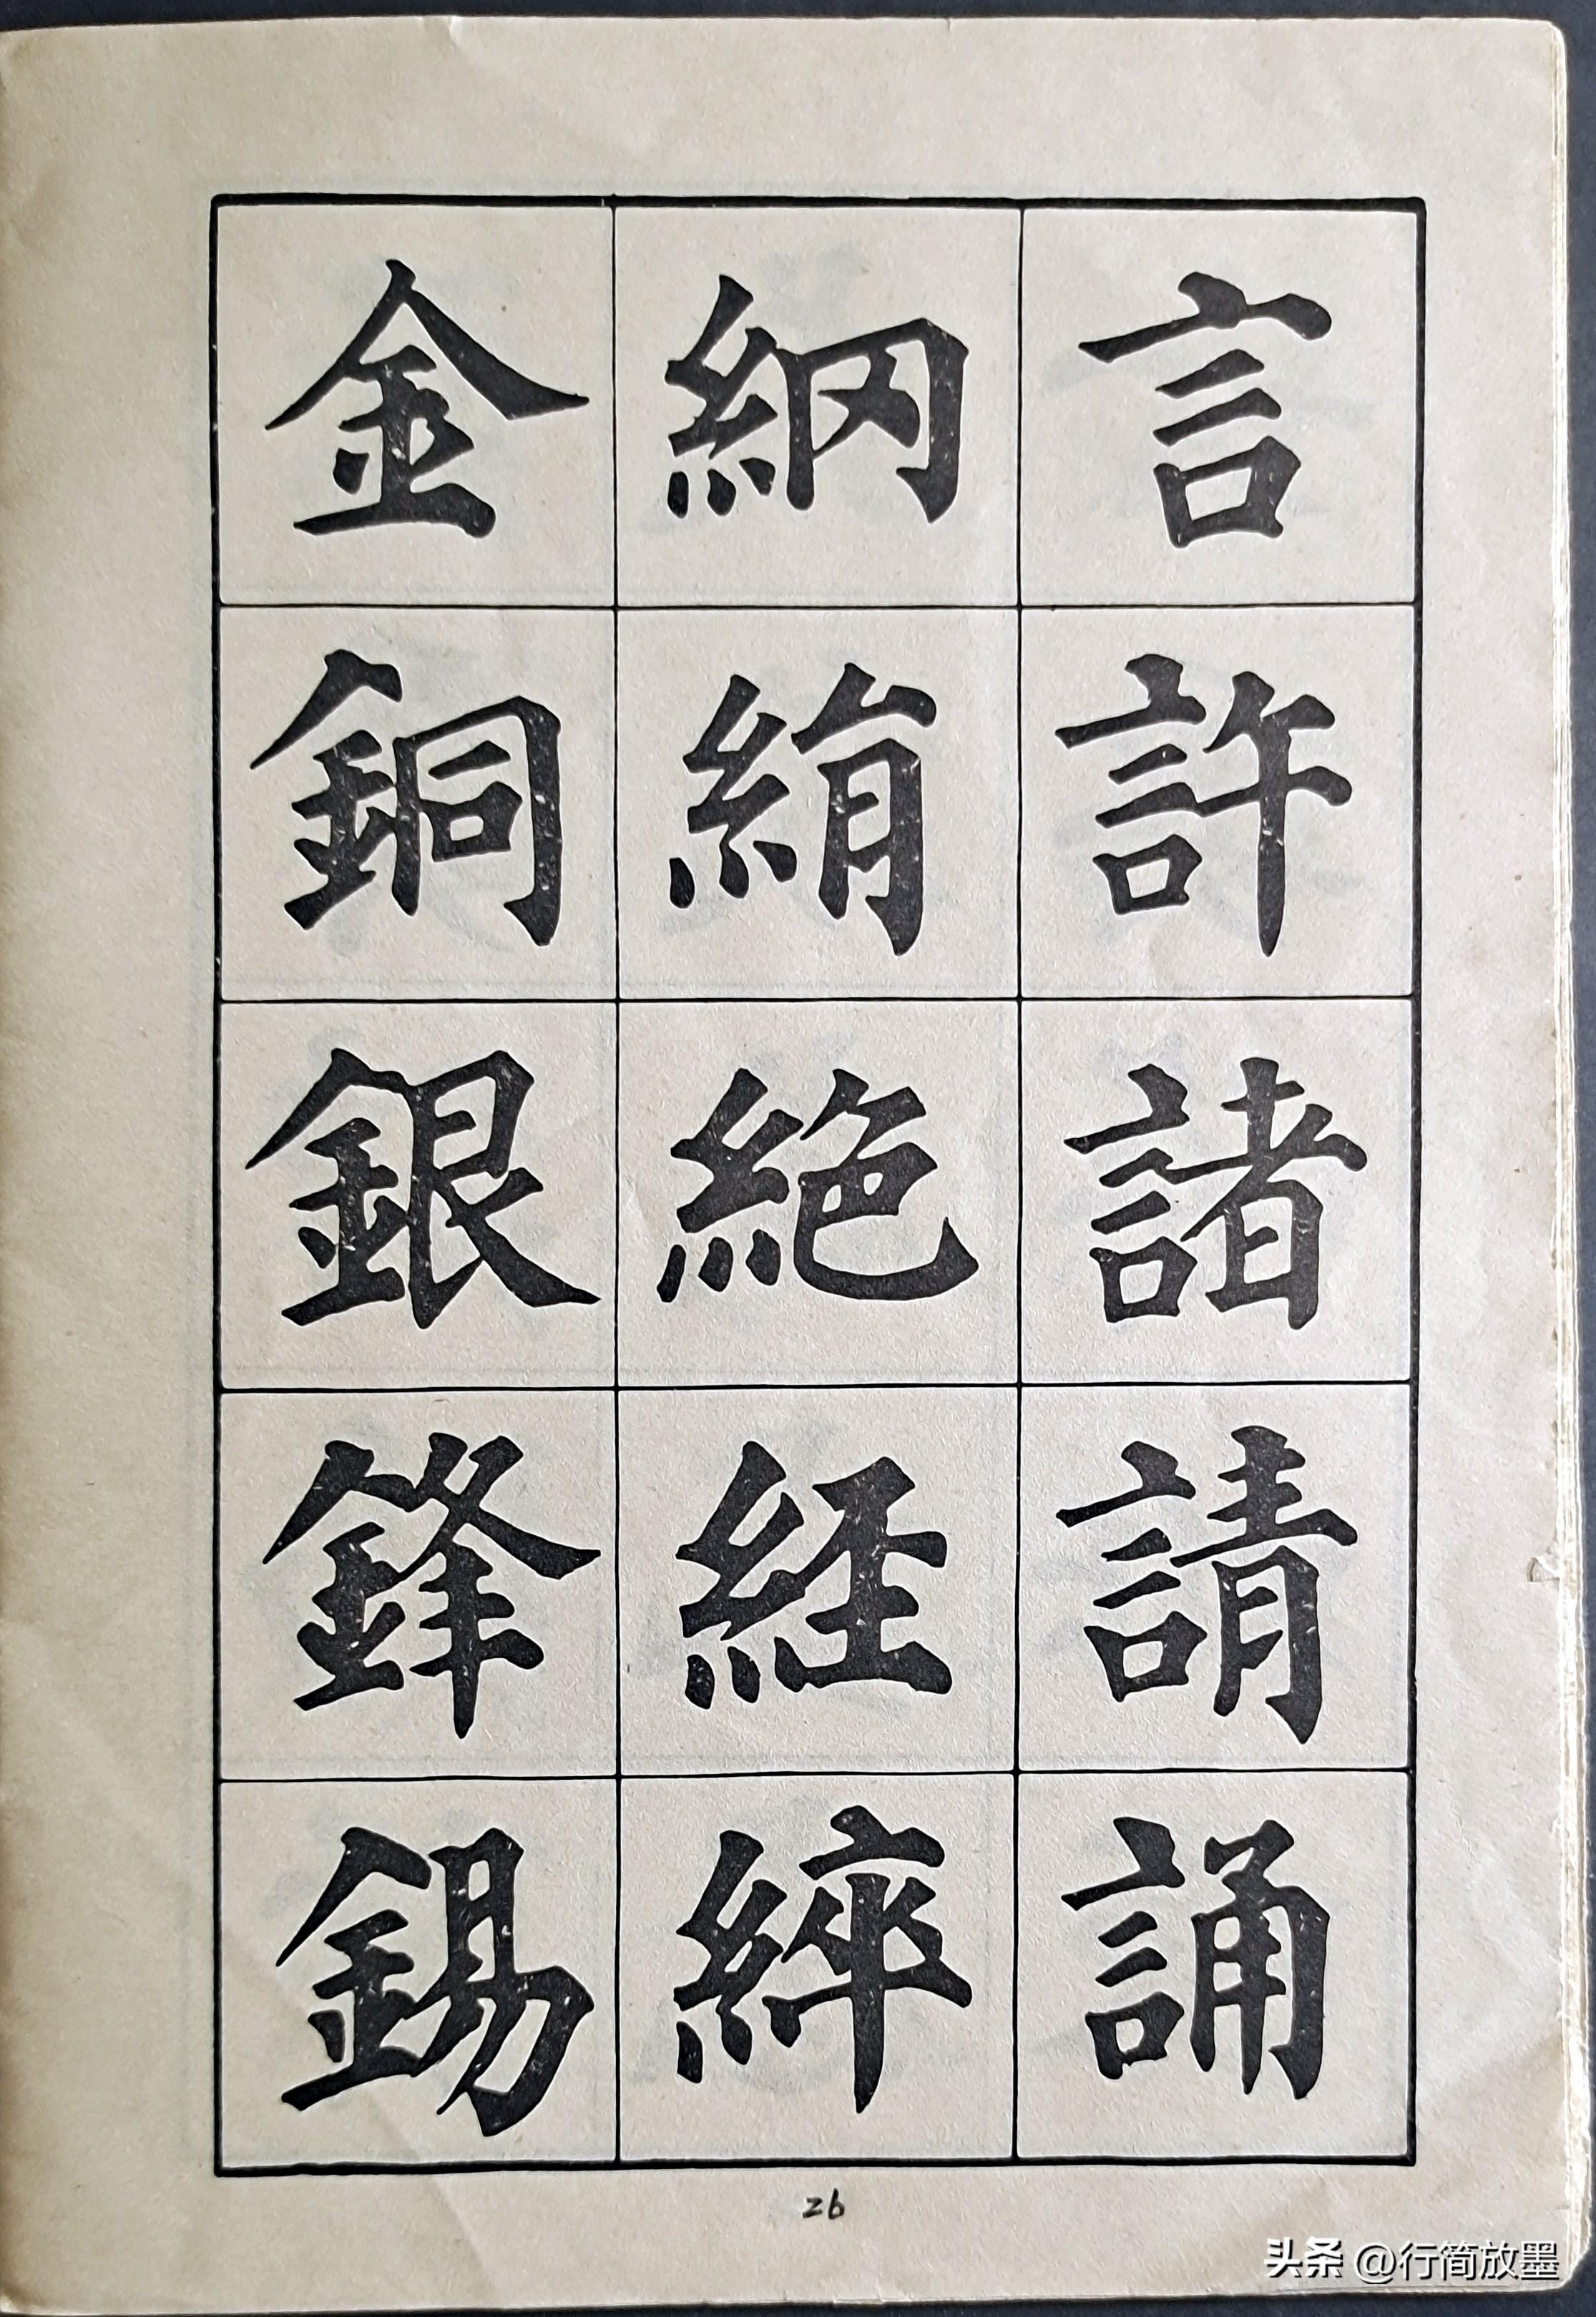 言許諸請誦
䋄絹絶経綷
金銅銀鋒錫
26
头条 @行简放墨